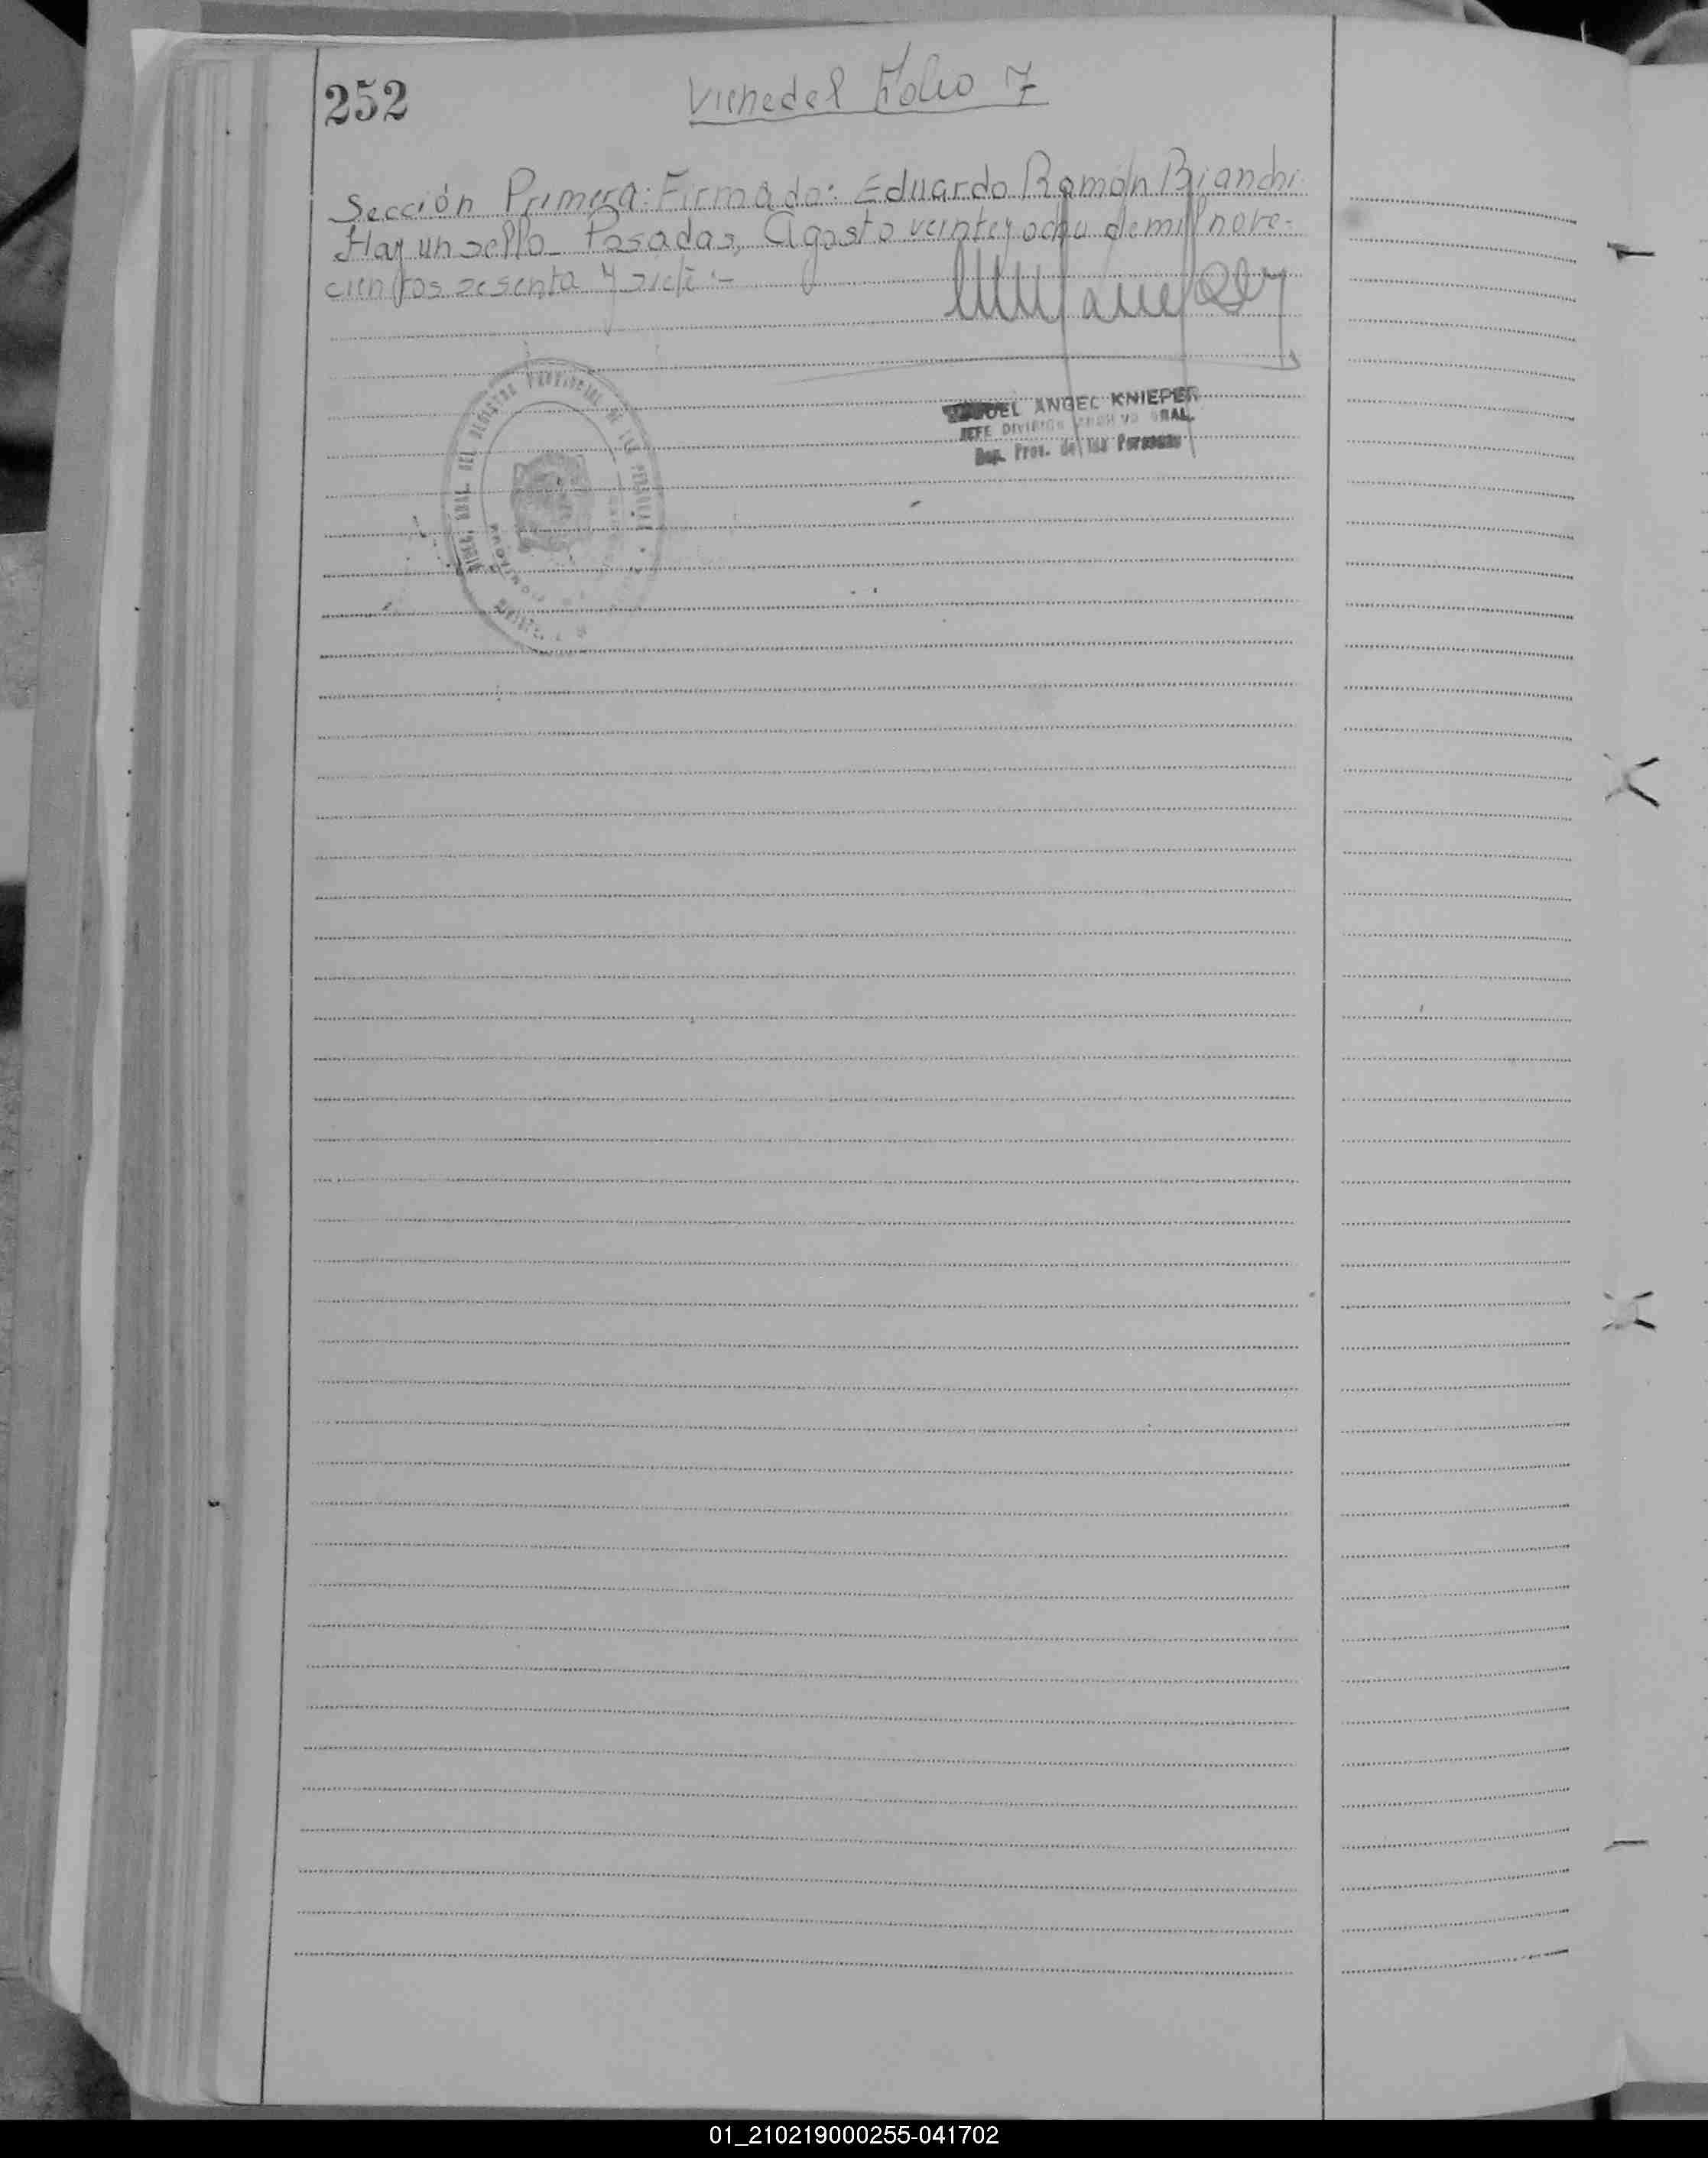 252
Viene del Folio 7
Sección Primera: Firmado: Eduardo Ramón Bianchi
Hay un sello. Posadas, Agosto veinte y ocho de mil nove-
cientos sesenta y siete:-
ANGEL KNIEPER
JEFE DIVISION GRAL.
Prov. de las Personas
GRAL. DEL REGISTRO PROVINCIAL DE LAS PERSONAS
01_210219000255-041702